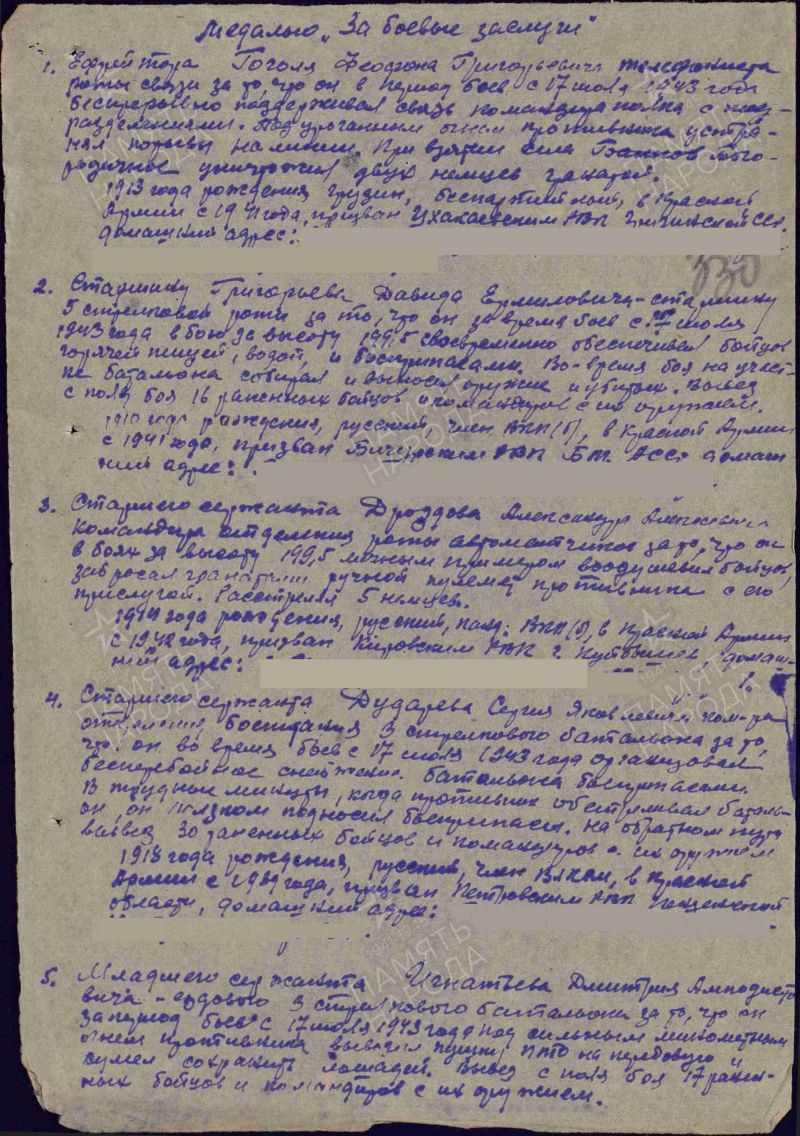 Медалью „За боевые заслуги"
1. Ефрейтора Гоголя Феофона Григорьевича телефониста
роты связи за то, что он в период боев с 17 июля 1943 года
беспрерывно поддерживал связь командира полка с под-
разделениями. Под ураганным огнем противника устра-
нял порывы на линии. При взятии села Бого-
родичное уничтожил двух немцев гранатой.
1913 года рождения, грузин, беспартийный, в Красной
Армии с 1941 года, призван Цхакаевским РВК Грузинской ССР.
домашний адрес:
330
2. Старшину Григорьева Давида Ермиловича – старшину
5 стрелковой роты за то, что он за время боев с 17 июля
1943 года в бою за высоту 199,5 своевременно обеспечивал бойцов
горячей пищей, водой, и боеприпасами. Во-время боя на участ-
ке батальона собирал и выносил оружие и убитых. Вывел
с поля боя 16 раненных бойцов и командиров с их оружием.
1910 года рождения, русский, член ВКП(б), в Красной Армии
с 1941 года, призван Бичурским РВК БМ. АССР домаш
ний адрес:
3. Старшего сержанта Дроздова Александра Алексеевича
командира отделения роты автоматчиков за то, что он
в боях за высоту 199,5 личным примером воодушевил бойцов,
забросал гранатами ручной пулемет противника с его
прислугой. Расстрелял 5 немцев.
1914 года рождения, русский, канд. ВКП(б), в Красной Армии
с 1942 года, призван Кировским РВК г. Куйбышев, домаш-
ний адрес:
4. Старшего сержанта Дударева Сергея Яковлевича ком-ра
отделения боепитания 3 стрелкового батальона за то,
что он во время боев с 17 июля 1943 года организовал
бесперебойное снабжение батальона боеприпасами.
В трудные минуты, когда противник обстреливал баталь-
он, он ползком подносил боеприпасы. На обратном пути
вывез 30 раненных бойцов и командиров с их оружием
1918 года рождения, русский, член ВЛКСМ, в Красной
Армии с 1939 года, призван Петровским РВК Пензенской
области, домашний адрес:
5. Младшего сержанта Игнатьева Дмитрия Амподисто
вича – ездового 3 стрелкового батальона за то, что он
за период боев с 17 июля 1943 года под сильным минометным
огнем противника вывозил пушку ПТО на передовую и
сумел сохранить лошадей. Вывез с поля боя 17 ранен-
ных бойцов и командиров с их оружием.
ПАМЯТЬ
НАРОДА